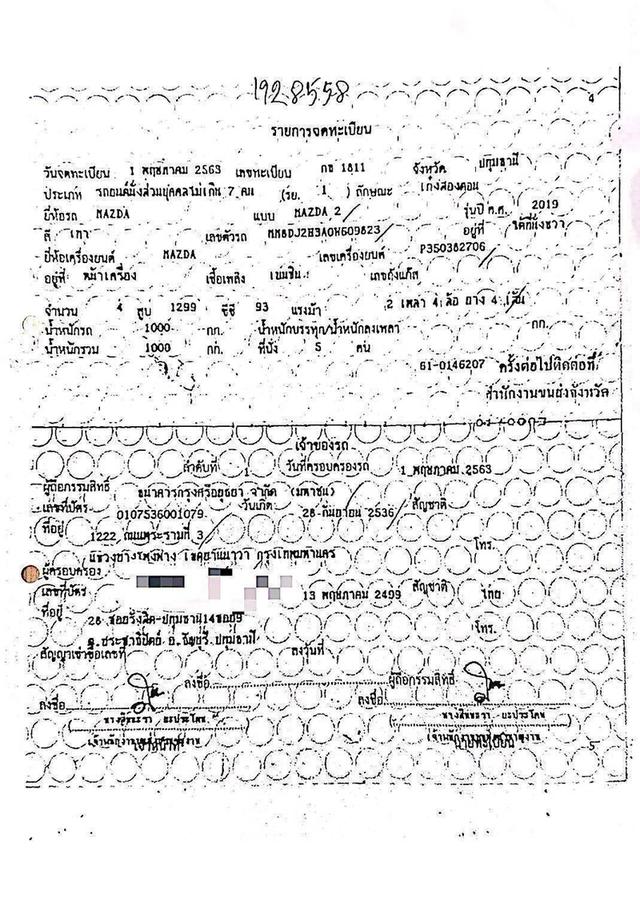 1928558
4
รายการจดทะเบียน
วันจดทะเบียน 1 พฤษภาคม 2563 เลขทะเบียน กธ 1811 จังหวัด ปทุมธานี
ประเภท รถยนต์นั่งส่วนบุคคลไม่เกิน 7 คน (รย. 1 ) ลักษณะ เก๋งสองตอน
ยี่ห้อรถ MAZDA แบบ MAZDA 2 รุ่นปี ค.ศ. 2019
สี เทา เลขตัวรถ อยู่ที่ ใต้ที่นั่งขวา
ยี่ห้อเครื่องยนต์ MAZDA เลขเครื่องยนต์ P350382706
อยู่ที่ หน้าเครื่อง เชื้อเพลิง เบนซิน เลขถังแก๊ส
จำนวน 4 สูบ 1299 ซีซี 93 แรงม้า 2 เพลา 4 ล้อ ยาง 4 เส้น
น้ำหนักรถ 1000 กก. น้ำหนักบรรทุก/น้ำหนักลงเพลา กก.
น้ำหนักรวม 1000 กก. ที่นั่ง 5 คน
61-0146207 ครั้งต่อไปติดต่อที่
สำนักงานขนส่งจังหวัด
เจ้าของรถ
ลำดับที่ 1 วันที่ครอบครองรถ 1 พฤษภาคม 2563
ผู้ถือกรรมสิทธิ์ ธนาคารกรุงศรีอยุธยา จำกัด (มหาชน)
เลขที่บัตร 0107536001079 วันเกิด 28 กันยายน 2536 สัญชาติ
ที่อยู่ 1222 ถนนพระรามที่ 3
แขวงบางโพงพาง เขตยานนาวา กรุงเทพมหานคร โทร.
ผู้ครอบครอง
เลขที่บัตร 13 พฤษภาคม 2499 สัญชาติ ไทย
ที่อยู่ 28 ซอยรังสิต-ปทุมธานี14ซอย9
ต.ประชาธิปัตย์ อ.ธัญบุรี ปทุมธานี โทร.
สัญญาเช่าซื้อเลขที่ ลงวันที่
ลงชื่อ ผู้ถือกรรมสิทธิ์
ลงชื่อ ลงชื่อ
นายทะเบียน
5